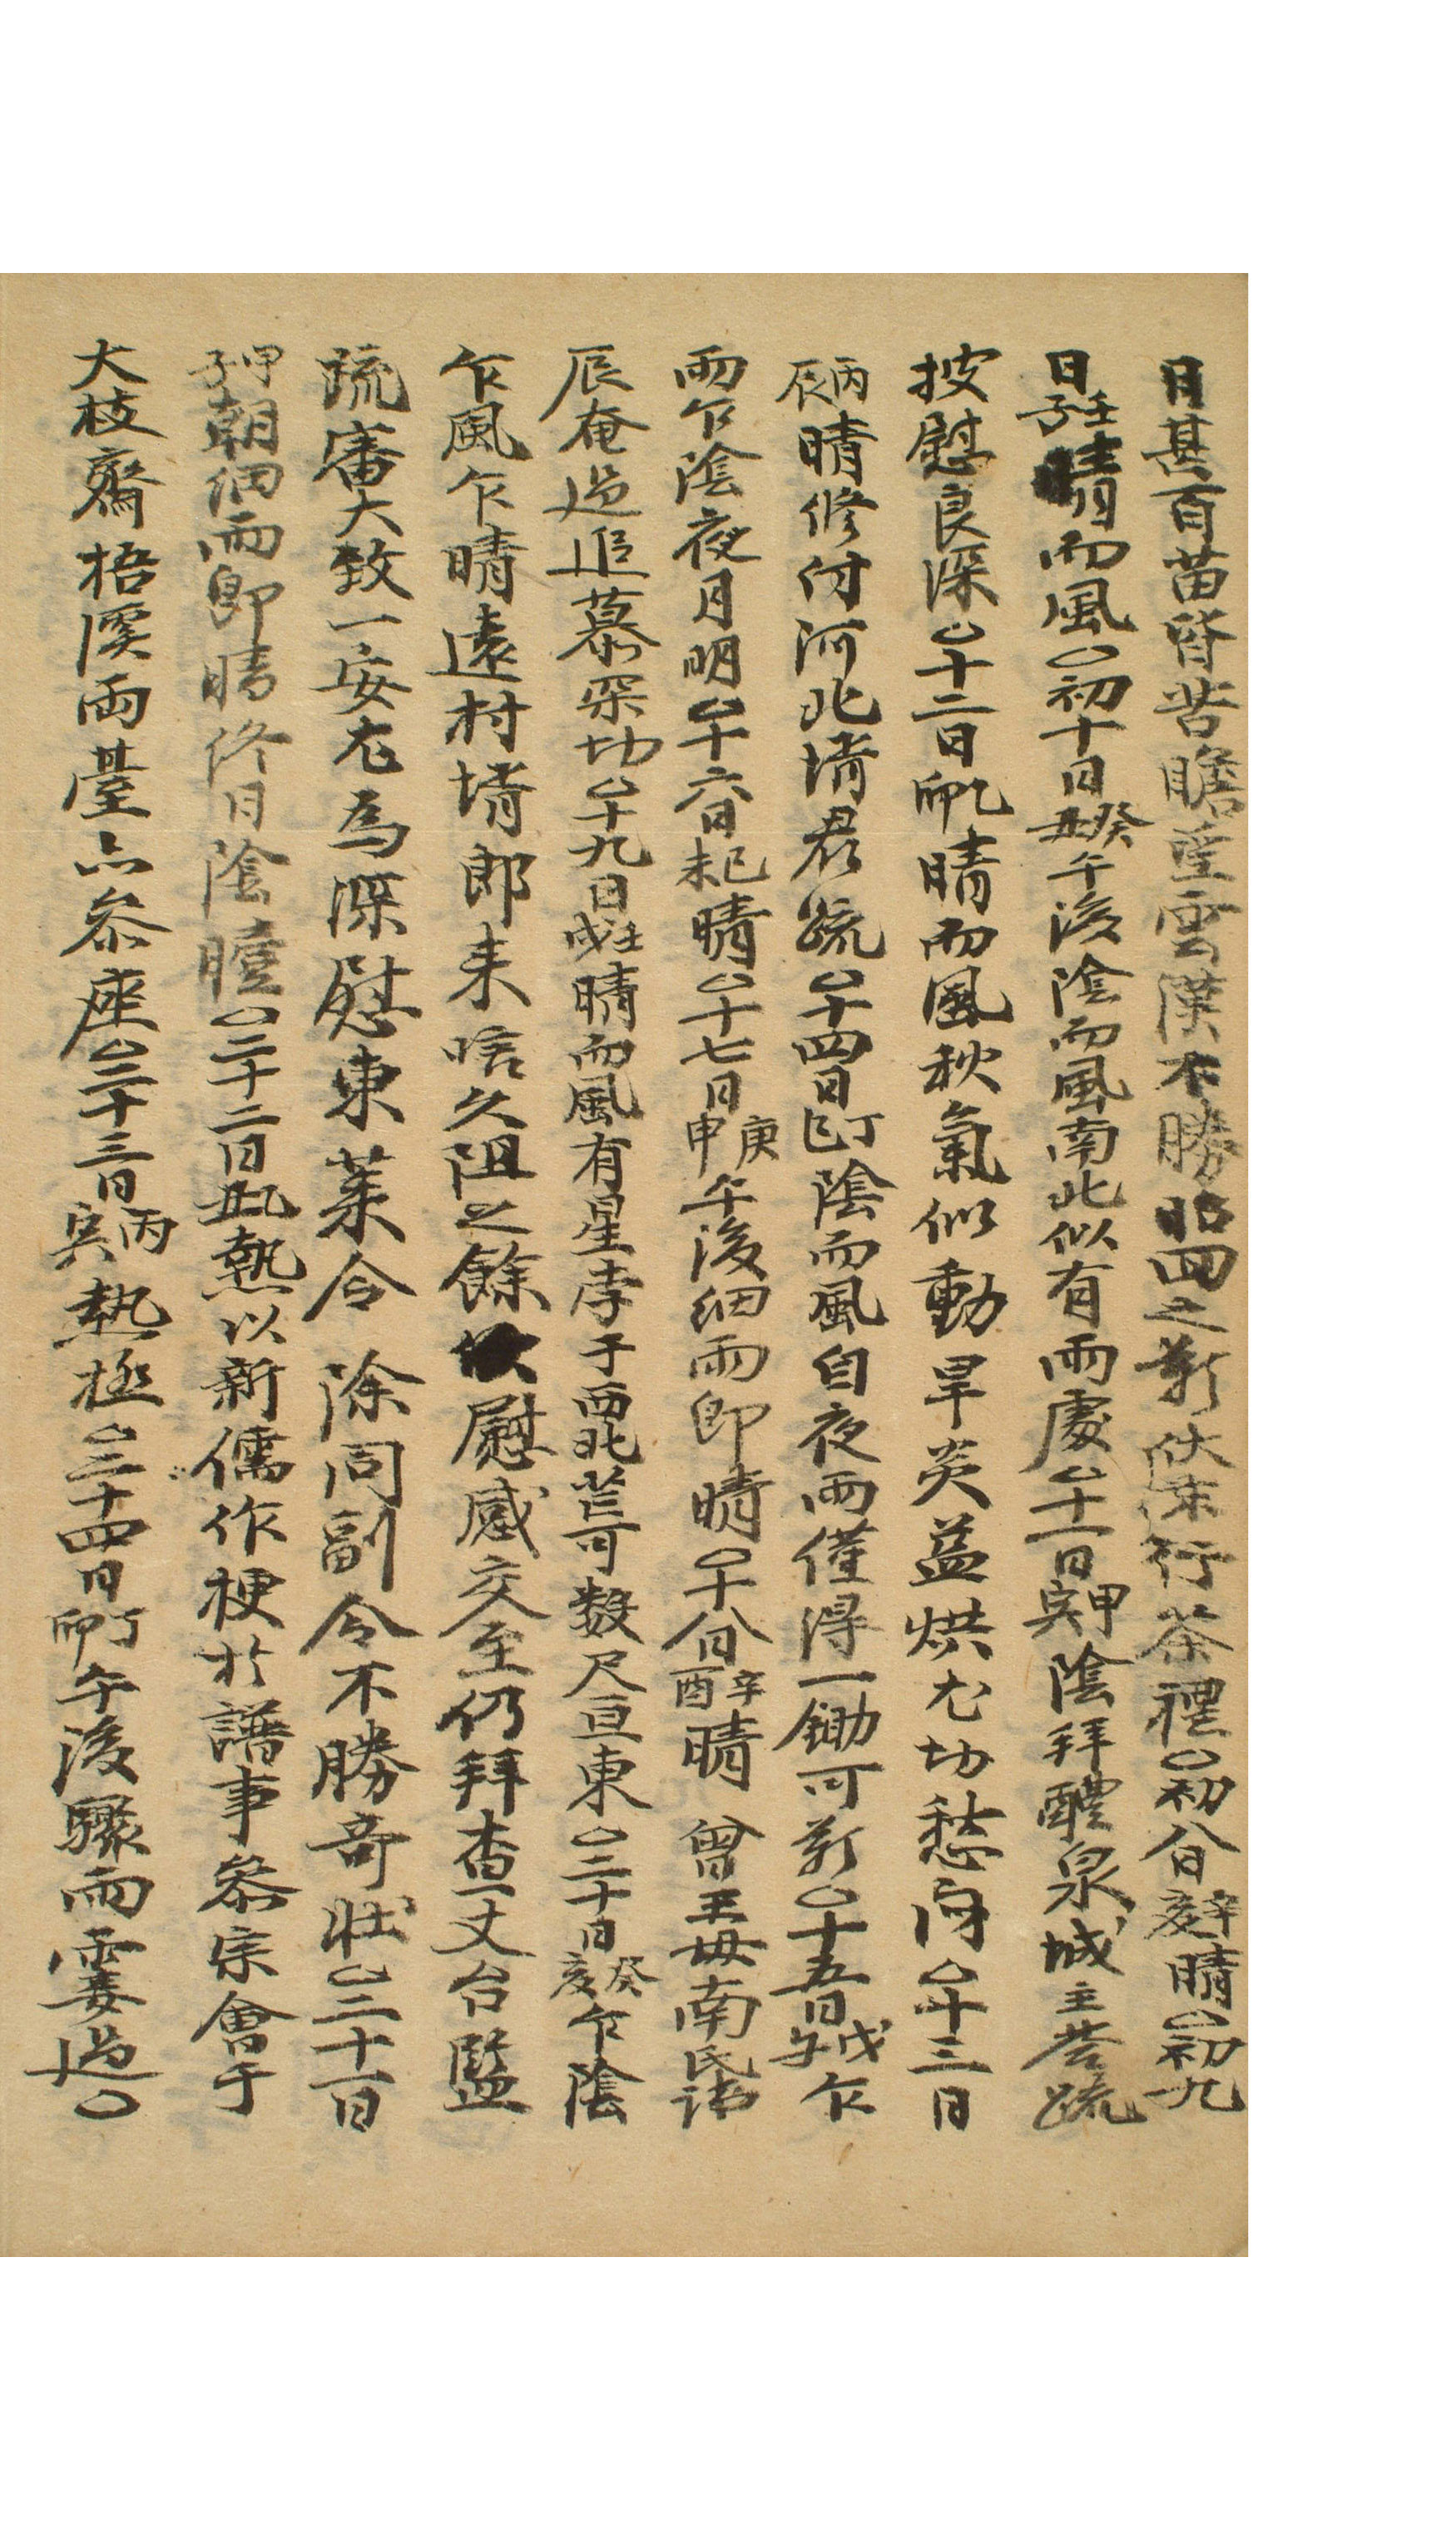 日甚百苗皆苦瞻望雲漢不勝昭回之歎伏末行茶禮○初八日辛亥晴○初九
日壬子晴而風○初十日癸丑午後陰而風南北似有雨處○十一日甲寅陰拜醴泉城主答疏
披慰良深○十二日乙卯晴而風秋氣似動旱炎益烘尤切愁向○十三日
丙辰晴修付河北壻君疏○十四日丁巳陰而風自夜雨僅得一鋤可歎○十五日戊午乍
雨乍陰夜月明○十六日己未晴○十七日庚申午後細雨卽晴○十八日辛酉晴 曾王母南氏諱
辰奄過追慕深切○十九日壬戌晴而風有星孛于西北芒可數尺亘東○二十日癸亥乍陰
乍風乍晴遠村壻郎来唁久阻之餘慰感交至仍拜查丈台監
疏審大致一安尤爲深慰東萊令 除同副令不勝奇壯○二十一日
甲子朝細雨卽晴終日陰曀○二十二日乙丑熱以新儒作梗於譜事參宗會于
大枝齋梧溪兩臺亦參座○二十三日丙寅熱極○二十四日丁卯午後驟雨霎過○